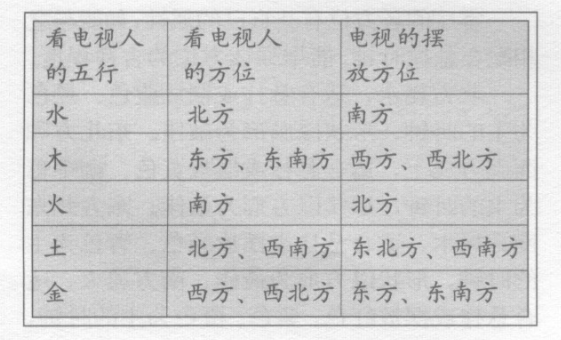 看电视人的五行 看电视人的方位 电视的摆放方位
水 北方 南方
木 东方、东南方 西方、西北方
火 南方 北方
土 北方、西南方 东北方、西南方
金 西方、西北方 东方、东南方